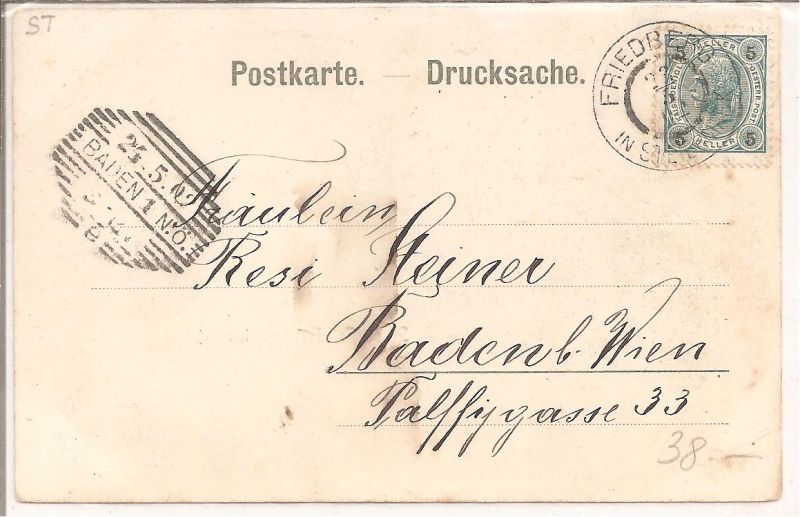 ST
Postkarte. — Drucksache.
FRIEDBERG
IN ST
5 HELLER 5
5 HELLER 5
OESTERR. POST.
24.5.
BADEN 1 N.Ö.
Fräulein
Resi Steiner
Baden b. Wien
Palffygasse 33
38.—